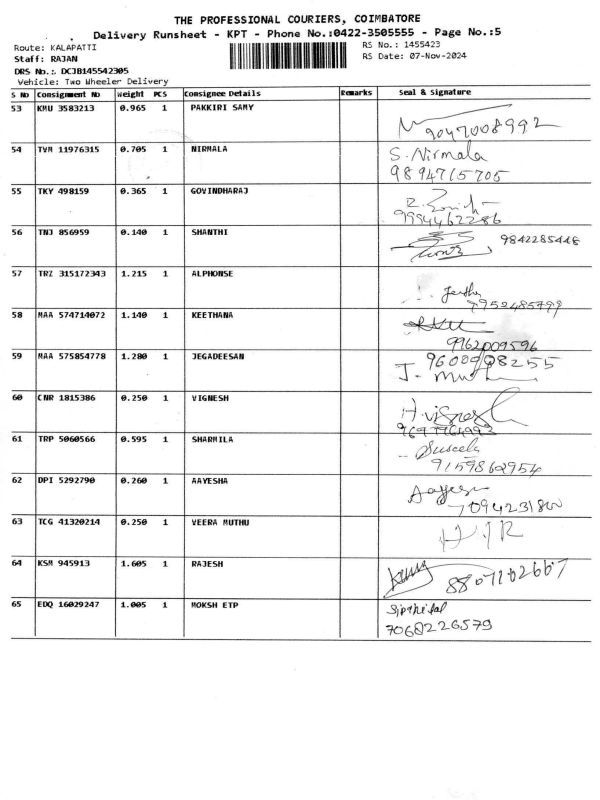 THE PROFESSIONAL COURIERS, COIMBATORE
Delivery Runsheet - KPT - Phone No.:0422-3505555 - Page No.:5
Route: KALAPATTI
RS No.: 1455423
Staff: RAJAN
RS Date: 07-Nov-2024
DRS No.:. DCJB145542305
Vehicle: Two Wheeler Delivery
S No Consignment No Weight PCS Consignee Details Remarks Seal & signature
53 KMU 3583213 0.965 1 PAKKIRI SAMY
9047008992
54 TVM 11976315 0.705 1 NIRMALA S. Nirmala
9894715705
55 TKY 498159 0.365 1 GOVINDHARAJ
9994462286
56 TNJ 856959 0.140 1 SHANTHI 9842285448
57 TRZ 315172343 1.215 1 ALPHONSE
7952485799
58 MAA 574714072 1.140 1 KEETHANA
9962009596
59 MAA 575854778 1.280 1 JEGADEESAN
60 CNR 1815386 0.250 1 VIGNESH H. Vignesh
61 TRP 5060566 0.595 1 SHARMILA Suseela
9159862954
62 DPI 5292790 0.260 1 AAYESHA
63 TCG 41320214 0.250 1 VEERA MUTHU
64 KSM 945913 1.605 1 RAJESH
8807102667
65 EDQ 16029247 1.005 1 MOKSH ETP
7068226579